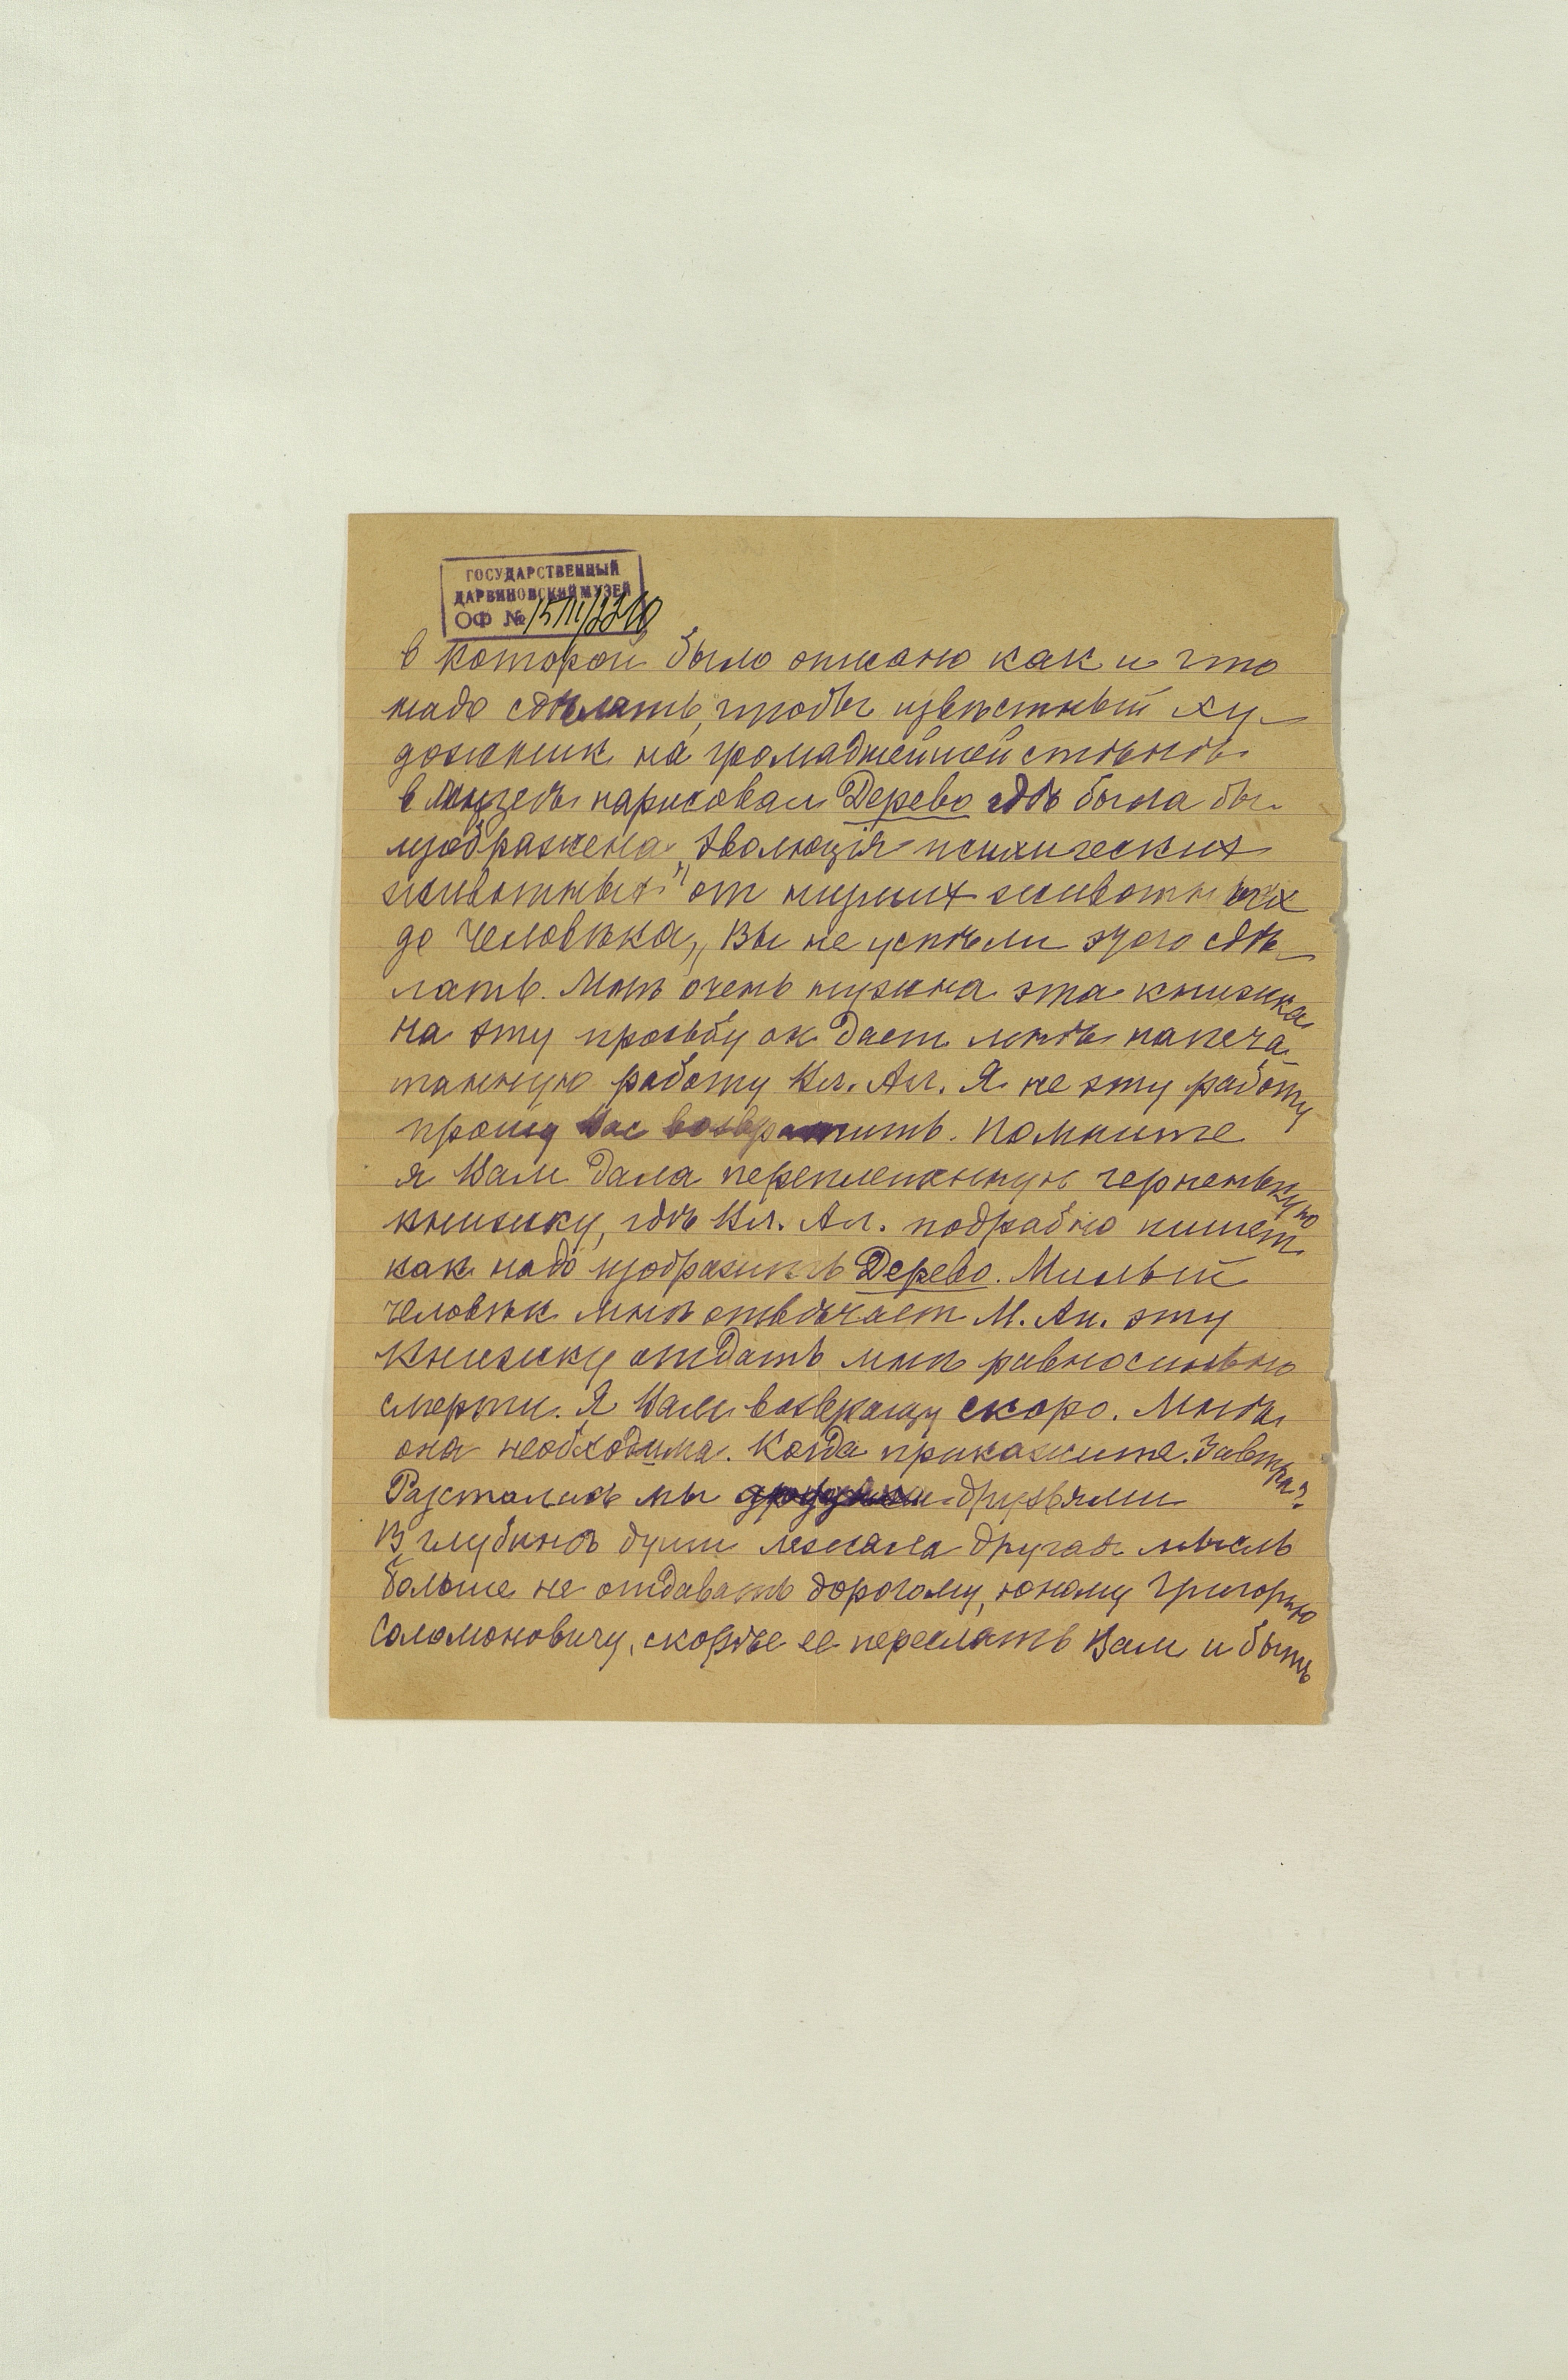 ГОСУДАРСТВЕННЫЙ
ДАРВИНОВСКИЙ МУЗЕЙ
ОФ №
в которой было описано как и что
надо сдѣлать, чтобы извѣстный ху-
дожник на громаднейшей стѣнѣ
в музеѣ нарисовал Дерево гдѣ была бы
изображена „эволюція психических
животных" от низших животных
до человѣка„ Вы не успѣли этого сдѣ-
лать. Мнѣ очень нужна эта книжка
на эту прозьбу он дает мнѣ напеча-
танную работу Вл. Ал. Я не эту работу
прошу Вас возвратить. Помните
я Вам дала переплетенную черненькую
книжку, гдѣ Вл. Ал. подробно пишет
как надо изобразить Дерево. Милый
человѣк мнѣ отвѣчает М. Ан. эту
книжку отдать мнѣ равносильно
смерти. Я Вам возвращу скоро. Мнѣ
она необходима. Когда прикажите. Завтра?
Разстались мы друзьями
В глубинѣ души лежала другая мысль
больше не отдавать дорогому, юному Григорью
Соломоновичу, скорѣе ее переслать Вам и быть